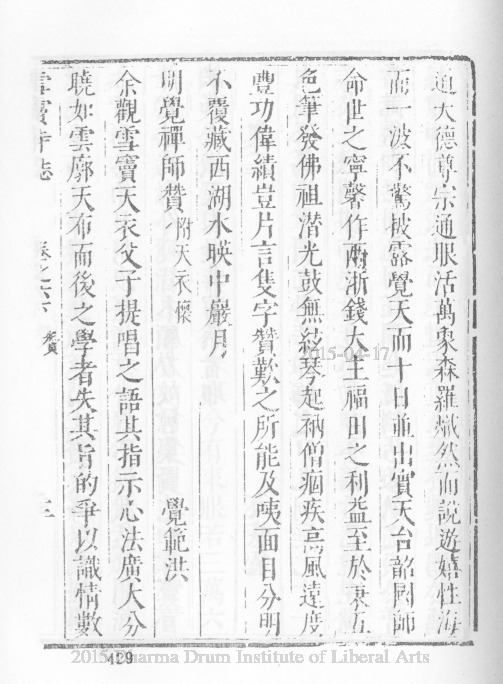 迫大德尊宗通眼活萬象森羅熾然而說遊嬉性海
而一波不驚披露覺天而十日並出實天台韶國師
命世之寧馨作兩浙錢大王福田之利益至於衷五
色筆發佛祖潜光鼓無絃琴起衲僧痼疾高風遠度
豐功偉績豈片言隻字贊歎之所能及咦面目分明
不覆藏西湖水映中巖月
明覺禪師贊 附天衣懷 覺範洪
余觀雪竇天衣父子提唱之語其指示心法廣大分
曉如雲廓天布而後之學者失其旨的爭以識情數
雪竇寺志 卷之六 贊 三
2015-04-17
429
2015 Dharma Drum Institute of Liberal Arts